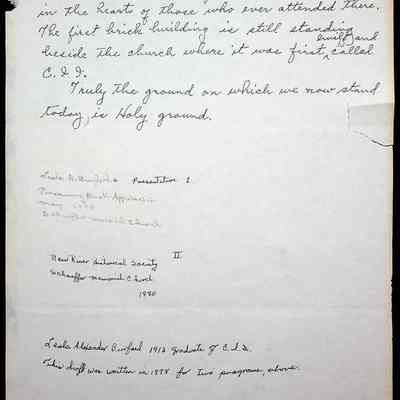 in the hearts of those who ever attended there.
The first brick building is still standing
built, and
beside the church where it was first called
C. I. I.
Truly the ground on which we now stand
today, is Holy ground.
Presentation I
May 1980
Schaeffer Memorial Church
II
New River Historical Society
Schaeffer Memorial Church
1980
Leola Alexander Burford 1913 graduate of C. I. I.
This draft was written in 1978 for two programs, above.